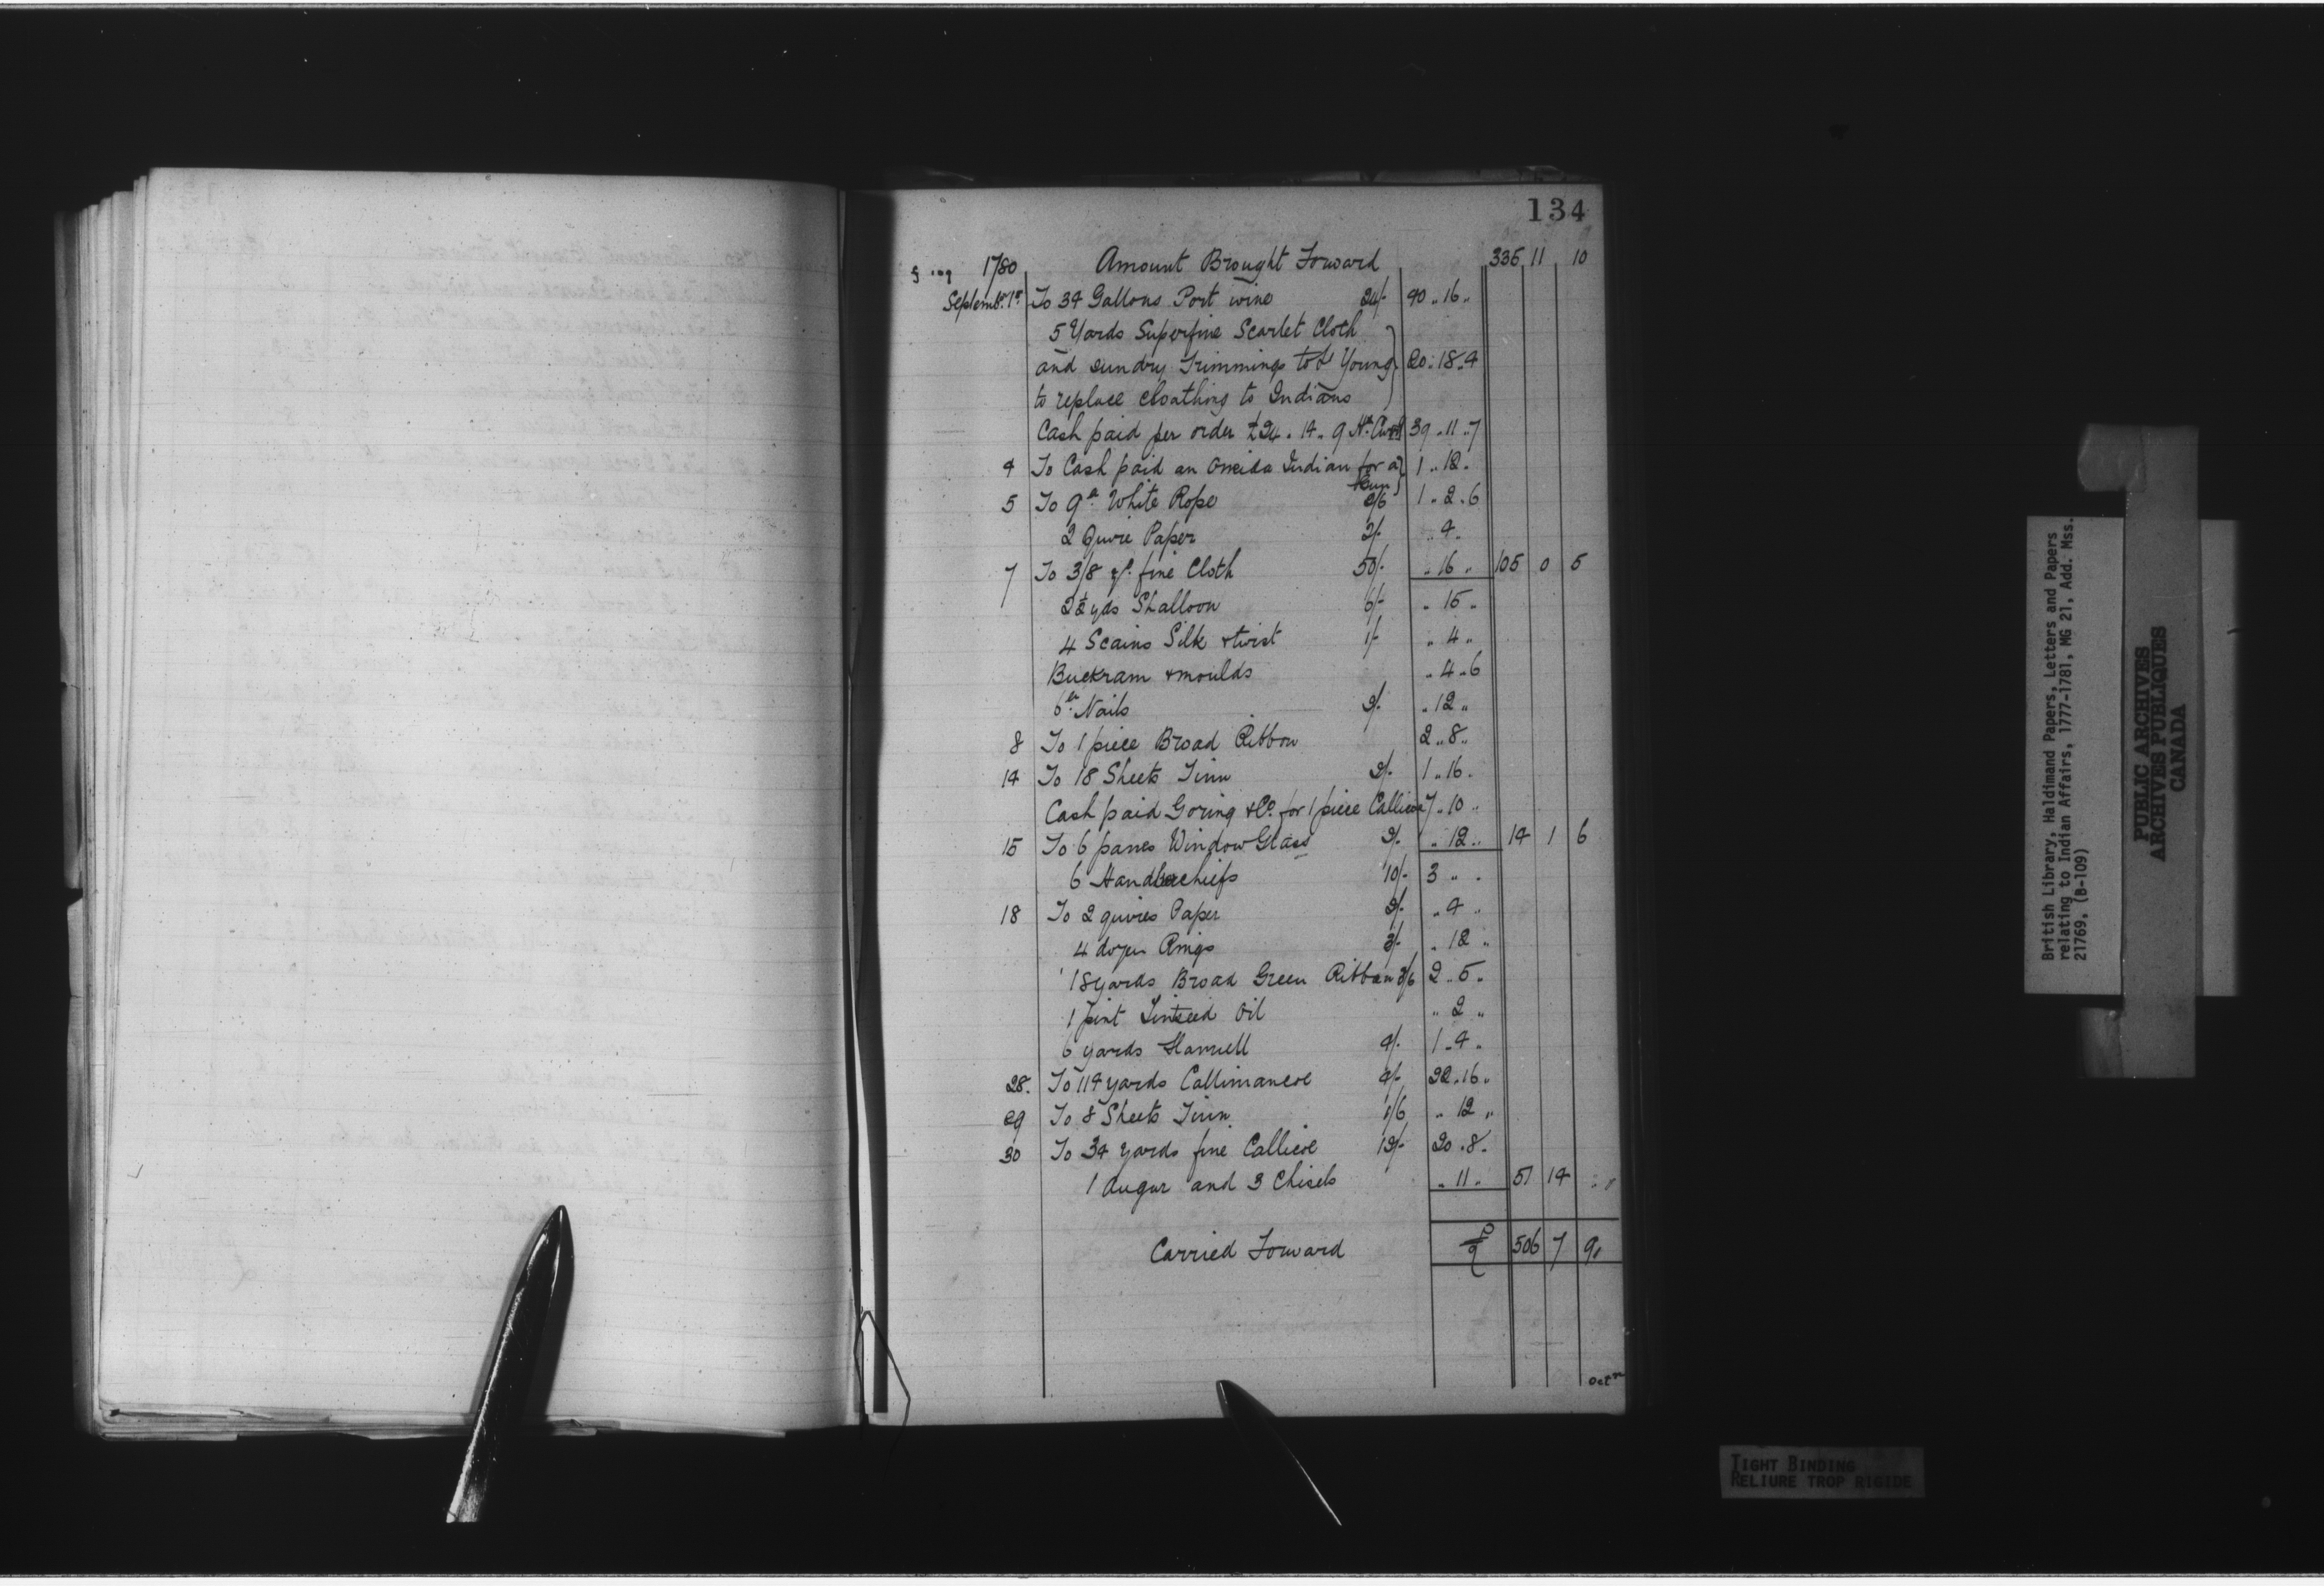 134
1780 Amount Brought Forward 335 11 10
Septembr. 1st To 34 Gallons Port wine 24/- 40 " 16 "
5 Yards Superfine Scarlet Cloth
and sundry Trimmings to Lt Young 20 " 18 " 4
to replace cloathing to Indians
Cash paid per order £24 " 14 " 9 Hx. Cur 39 " 11 " 7
4 To Cash paid an Oneida Indian for a 1 " 12 "
Gun
5 To 9 lb. White Rope 2/6 1 " 2 " 6
2 Quire Paper 2/- " 4 "
7 To 3/8 yd. fine Cloth 50/- " 16 " 105 0 5
2½ yds Shalloon 6/- " 15 "
4 Scains Silk & twist 1/- " 4 "
Buckram & moulds " 4 " 6
6 lb. Nails 2/- " 12 "
8 To 1 piece Broad Ribbon 2 " 8 "
14 To 18 Sheets Tinn 2/- 1 " 16 "
Cash paid Goring & Co. for 1 piece Callicoe 7 " 10 "
15 To 6 panes Window Glass 2/- " 12 " 14 1 6
6 Handkerchiefs 10/- 3 " "
18 To 2 quires Paper 2/- " 4 "
4 dozen Rings 3/- " 12 "
18 yards Broad Green Ribban 2/6 2 " 5 "
1 pint Linseed Oil " 2 "
6 yards Flannell 4/- 1 " 4 "
28. To 114 yards Callimancoe 4/- 22 " 16 "
29 To 8 Sheets Tinn 1/6 " 12 "
30 To 34 yards fine Callicoe 12/- 20 " 8 "
1 Augur and 3 Chisels " 11 " 51 14 "
Carried Forward 506 7 9
British Library, Haldimand Papers, Letters and Papers
relating to Indian Affairs, 1777-1781, MG 21, Add. Mss.
21769, (B-109)
PUBLIC ARCHIVES
ARCHIVES PUBLIQUES
CANADA
TIGHT BINDING
RELIURE TROP RIGIDE